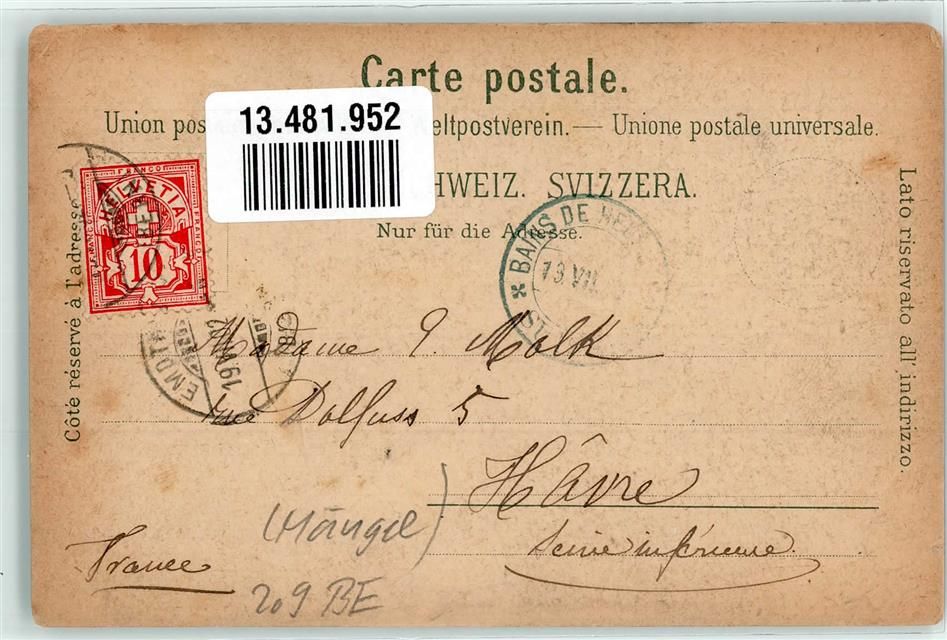 Carte postale.
13.481.952
Union pos eltpostverein. — Unione postale universale.
HWEIZ. SVIZZERA.
Nur für die Adresse.
Côté réservé à l'adresse
Lato riservato all' indirizzo.
FRANCO
HELVETIA
FRANCO
FRANCO
10
BAINS DE
13 VII
19 VII 02
Madame E. Molk
rue Dolfuss 5
Hâvre
Seine inférieure
France
(Mängel)
209 BE